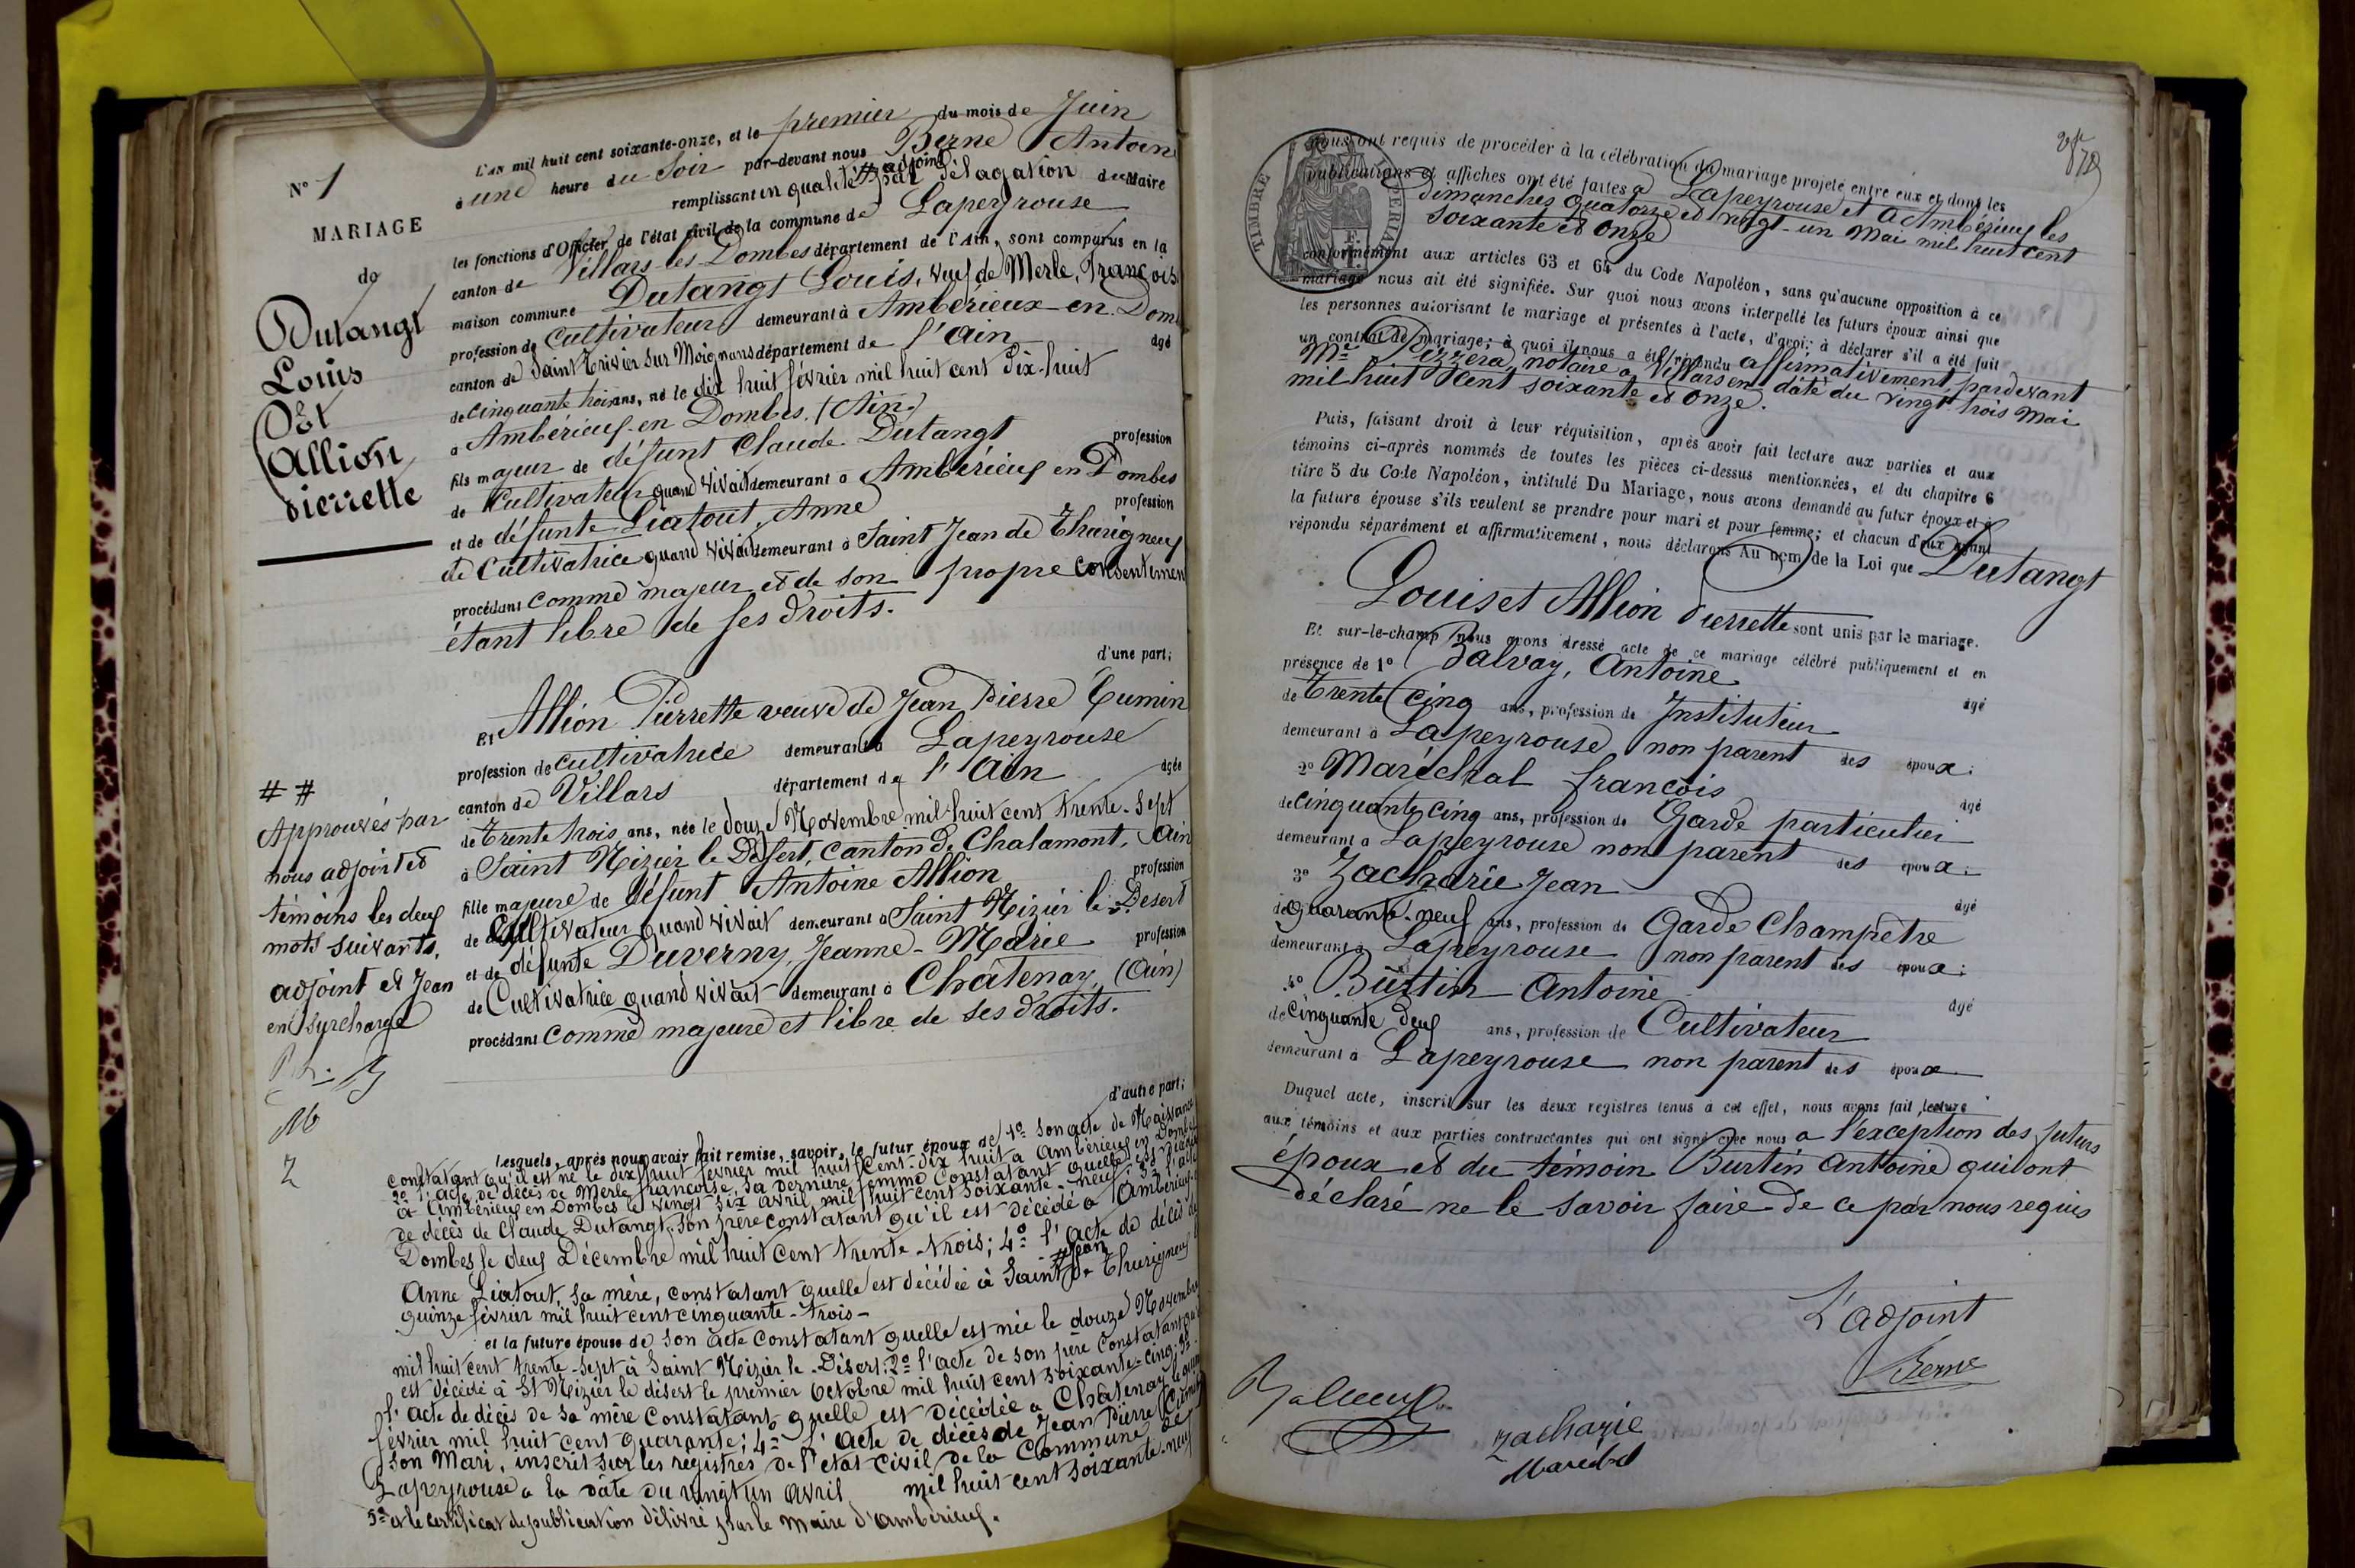 N° 1
MARIAGE
de
Dutangt
Louis
Et
Allion
Pierrette
# #
Approuvés par
nous adjoint et
témoins les deux
mots suivants,
adjoint et Jean
en surcharge
B
M
Z
L'AN mil huit cent soixante-onze, et le premier du mois de Juin
à une heure du Soir par-devant nous Berne Antoin
# adjoint
remplissant en qualité par délagation du Maire
les fonctions d'Officier de l'état civil de la commune de Lapeyrouse
canton de Villars-les-Dombes département de l'Ain, sont comparus en la
maison commune Dutangt Louis, veuf de Merle, François
profession de Cultivateur demeurant à Ambérieux-en-Dom
canton de Saint Trivier sur Moignans département de l'Ain âgé
de Cinquante trois ans, né le dix huit février mil huit cent dix-huit
à Ambérieux-en Dombes. (Ain)
fils majeur de défunt Claude Dutangt profession
de Cultivateur quand vivait demeurant à Ambérieux en Dombes
et de défunte Liatout, Anne profession
de Cultivatrice quand vivait demeurant à Saint Jean de Thurigneux
procédant Comme majeur et de son propre consentemen
étant libre de ses droits.
d'une part;
Et Allion Pierrette veuve de Jean Pierre Cumin
profession de cultivatrice demeurant à Lapeyrouse
canton de Villars département de l'Ain âgée
de Trente trois ans, née le douze Novembre mil huit cent trente-Sept
à Saint Nizier le Désert, Canton de Chalamont, Ain
fille majeure de défunt Antoine Allion profession
de Cultivateur quand vivait demeurant à Saint Nizier le Desert
et de défunte Duverny, Jeanne-Marie profession
de Cultivatrice quand vivait demeurant à Châtenay (Ain)
procédant Comme majeure et libre de ses droits.
d'autre part;
lesquels, après nous avoir fait remise, savoir, le futur époux de 1° Son acte de Naissance
constatant qu'il est né le dix huit février mil huit cent-dix huit à Ambérieux en Dombes
2° l'acte de décès de Merle Françoise, sa dernière femme constatant quelle est décédée
à Ambérieux en Dombes le vingt six avril mil huit cent soixante-neuf; 3° l'acte
de décès de Claude Dutangt, son père constatant qu'il est décédé à Ambérieux
Dombes le deux Décembre mil huit cent trente-trois; 4° l'acte de décès de
# Jean
Anne Liatout, sa mère, constatant quelle est décédée à Saint de Thurigneux
quinze février mil huit cent cinquante-trois-
et la future épouse de Son acte constatant quelle est née le douze Novembre
mil huit cent trente-sept à Saint Nizier le-Désert; 2° l'acte de son père constatant qu'il
est décédé à St Nizier le désert le premier Octobre mil huit cent soixante-cinq; 3°
l'acte de décès de sa mère constatant quelle est décédée à Châtenay le
février mil huit cent quarante; 4° l'acte de décès de Jean Pierre Cumin
son Mari, inscrit sur les registres de l'état civil de la Commune de
Lapeyrouse à la date du vingt un avril mil huit cent soixante-neuf
5° et le certificat de publication délivré par le Maire d'Ambérieux.
TIMBRE IMPÉRIAL
Nous ont requis de procéder à la célébration du mariage projeté entre eux et dont les
publications et affiches ont été faites à Lapeyrouse et à Ambérieux les
dimanches quatorze et vingt-un Mai mil huit cent
soixante et onze
conformément aux articles 63 et 64 du Code Napoléon, sans qu'aucune opposition à ce
mariage nous ait été signifiée. Sur quoi nous avons interpellé les futurs époux ainsi que
les personnes autorisant le mariage et présentes à l'acte, d'avoir à déclarer s'il a été fait
un contrat de mariage; à quoi il nous a été répondu affirmativement, pardevant
Me Pizzera, notaire à Villars en date du vingt trois Mai
mil huit Cent soixante et onze.
Puis, faisant droit à leur réquisition, après avoir fait lecture aux parties et aux
témoins ci-après nommés de toutes les pièces ci-dessus mentionnées, et du chapitre 6
titre 5 du Code Napoléon, intitulé Du Mariage, nous avons demandé au futur époux et à
la future épouse s'ils veulent se prendre pour mari et pour femme; et chacun d'eux ayant
répondu séparément et affirmativement, nous déclarons Au nom de la Loi que Dutangt
Louis et Allion Pierrette sont unis par le mariage.
Et sur-le-champ nous avons dressé acte de ce mariage célébré publiquement et en
présence de 1° Balvay, Antoine âgé
de Trente Cinq ans, profession de Instituteur
demeurant à Lapeyrouse non parent des époux;
2° Maréchal François âgé
de Cinquante cinq ans, profession de Garde particulier
demeurant à Lapeyrouse non parent des époux;
3° Zacharie Jean âgé
de quarante-neuf ans, profession de Garde Champêtre
demeurant à Lapeyrouse non parent des époux;
4° Burtin Antoine âgé
de Cinquante deux ans, profession de Cultivateur
demeurant à Lapeyrouse non parent des époux
Duquel acte, inscrit sur les deux registres tenus à cet effet, nous avons fait lecture
aux témoins et aux parties contractantes qui ont signé avec nous à l'exception des futurs
époux et du témoin Burtin Antoine qui ont
déclaré ne le savoir faire de ce par nous requis
L'adjoint
Berne
Balvay
Zacharie
Marechal